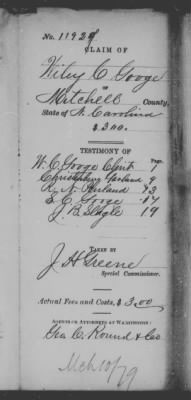 No. 11929
CLAIM OF
Wiley C Googe
Mitchell County,
State of N. Carolina
$ 300.
TESTIMONY OF
Page
W. C Googe Clmt. 1
Christopher Garland 9
A. N. Penland 13
E. C. Googe 17
J B Slagle 19
TAKEN BY
J. H Greene
Special Commissioner.
Actual Fees and Costs, $ 3.00
AGENTS OR ATTORNEYS AT WASHINGTON:
Geo C. Round & Co
Mch 10/79